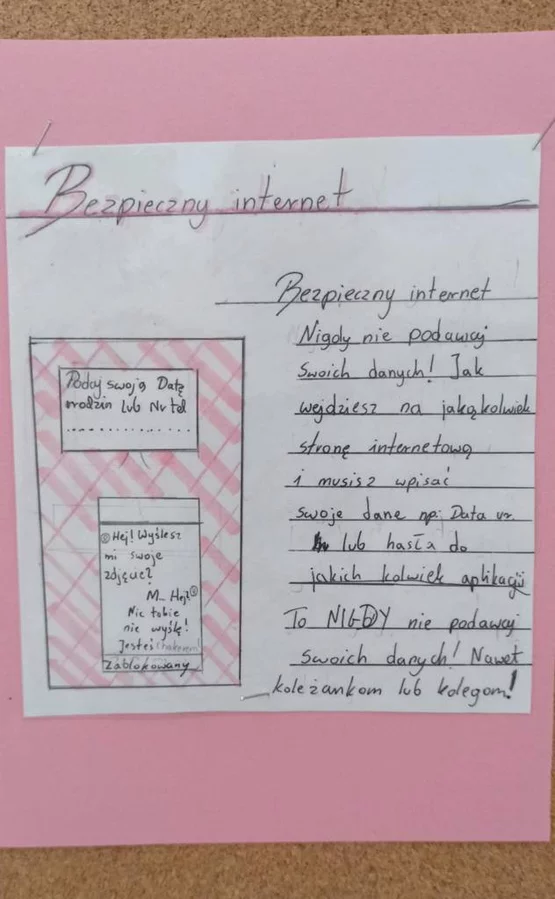 Bezpieczny internet
Podaj swoją Datę
urodzin lub Nr tel
..................
Hej! Wyślesz
mi swoje
zdjęcie?
M... Hej?
Nic tobie
nie wyślę!
Jesteś hakerem!
Zablokowany
Bezpieczny internet
Nigdy nie podawaj
Swoich danych! Jak
wejdziesz na jakąkolwiek
stronę internetową
i musisz wpisać
swoje dane np. Data ur.
lub hasła do
jakich kolwiek aplikacji
To NIGDY nie podawaj
swoich danych! Nawet
koleżankom lub kolegom!